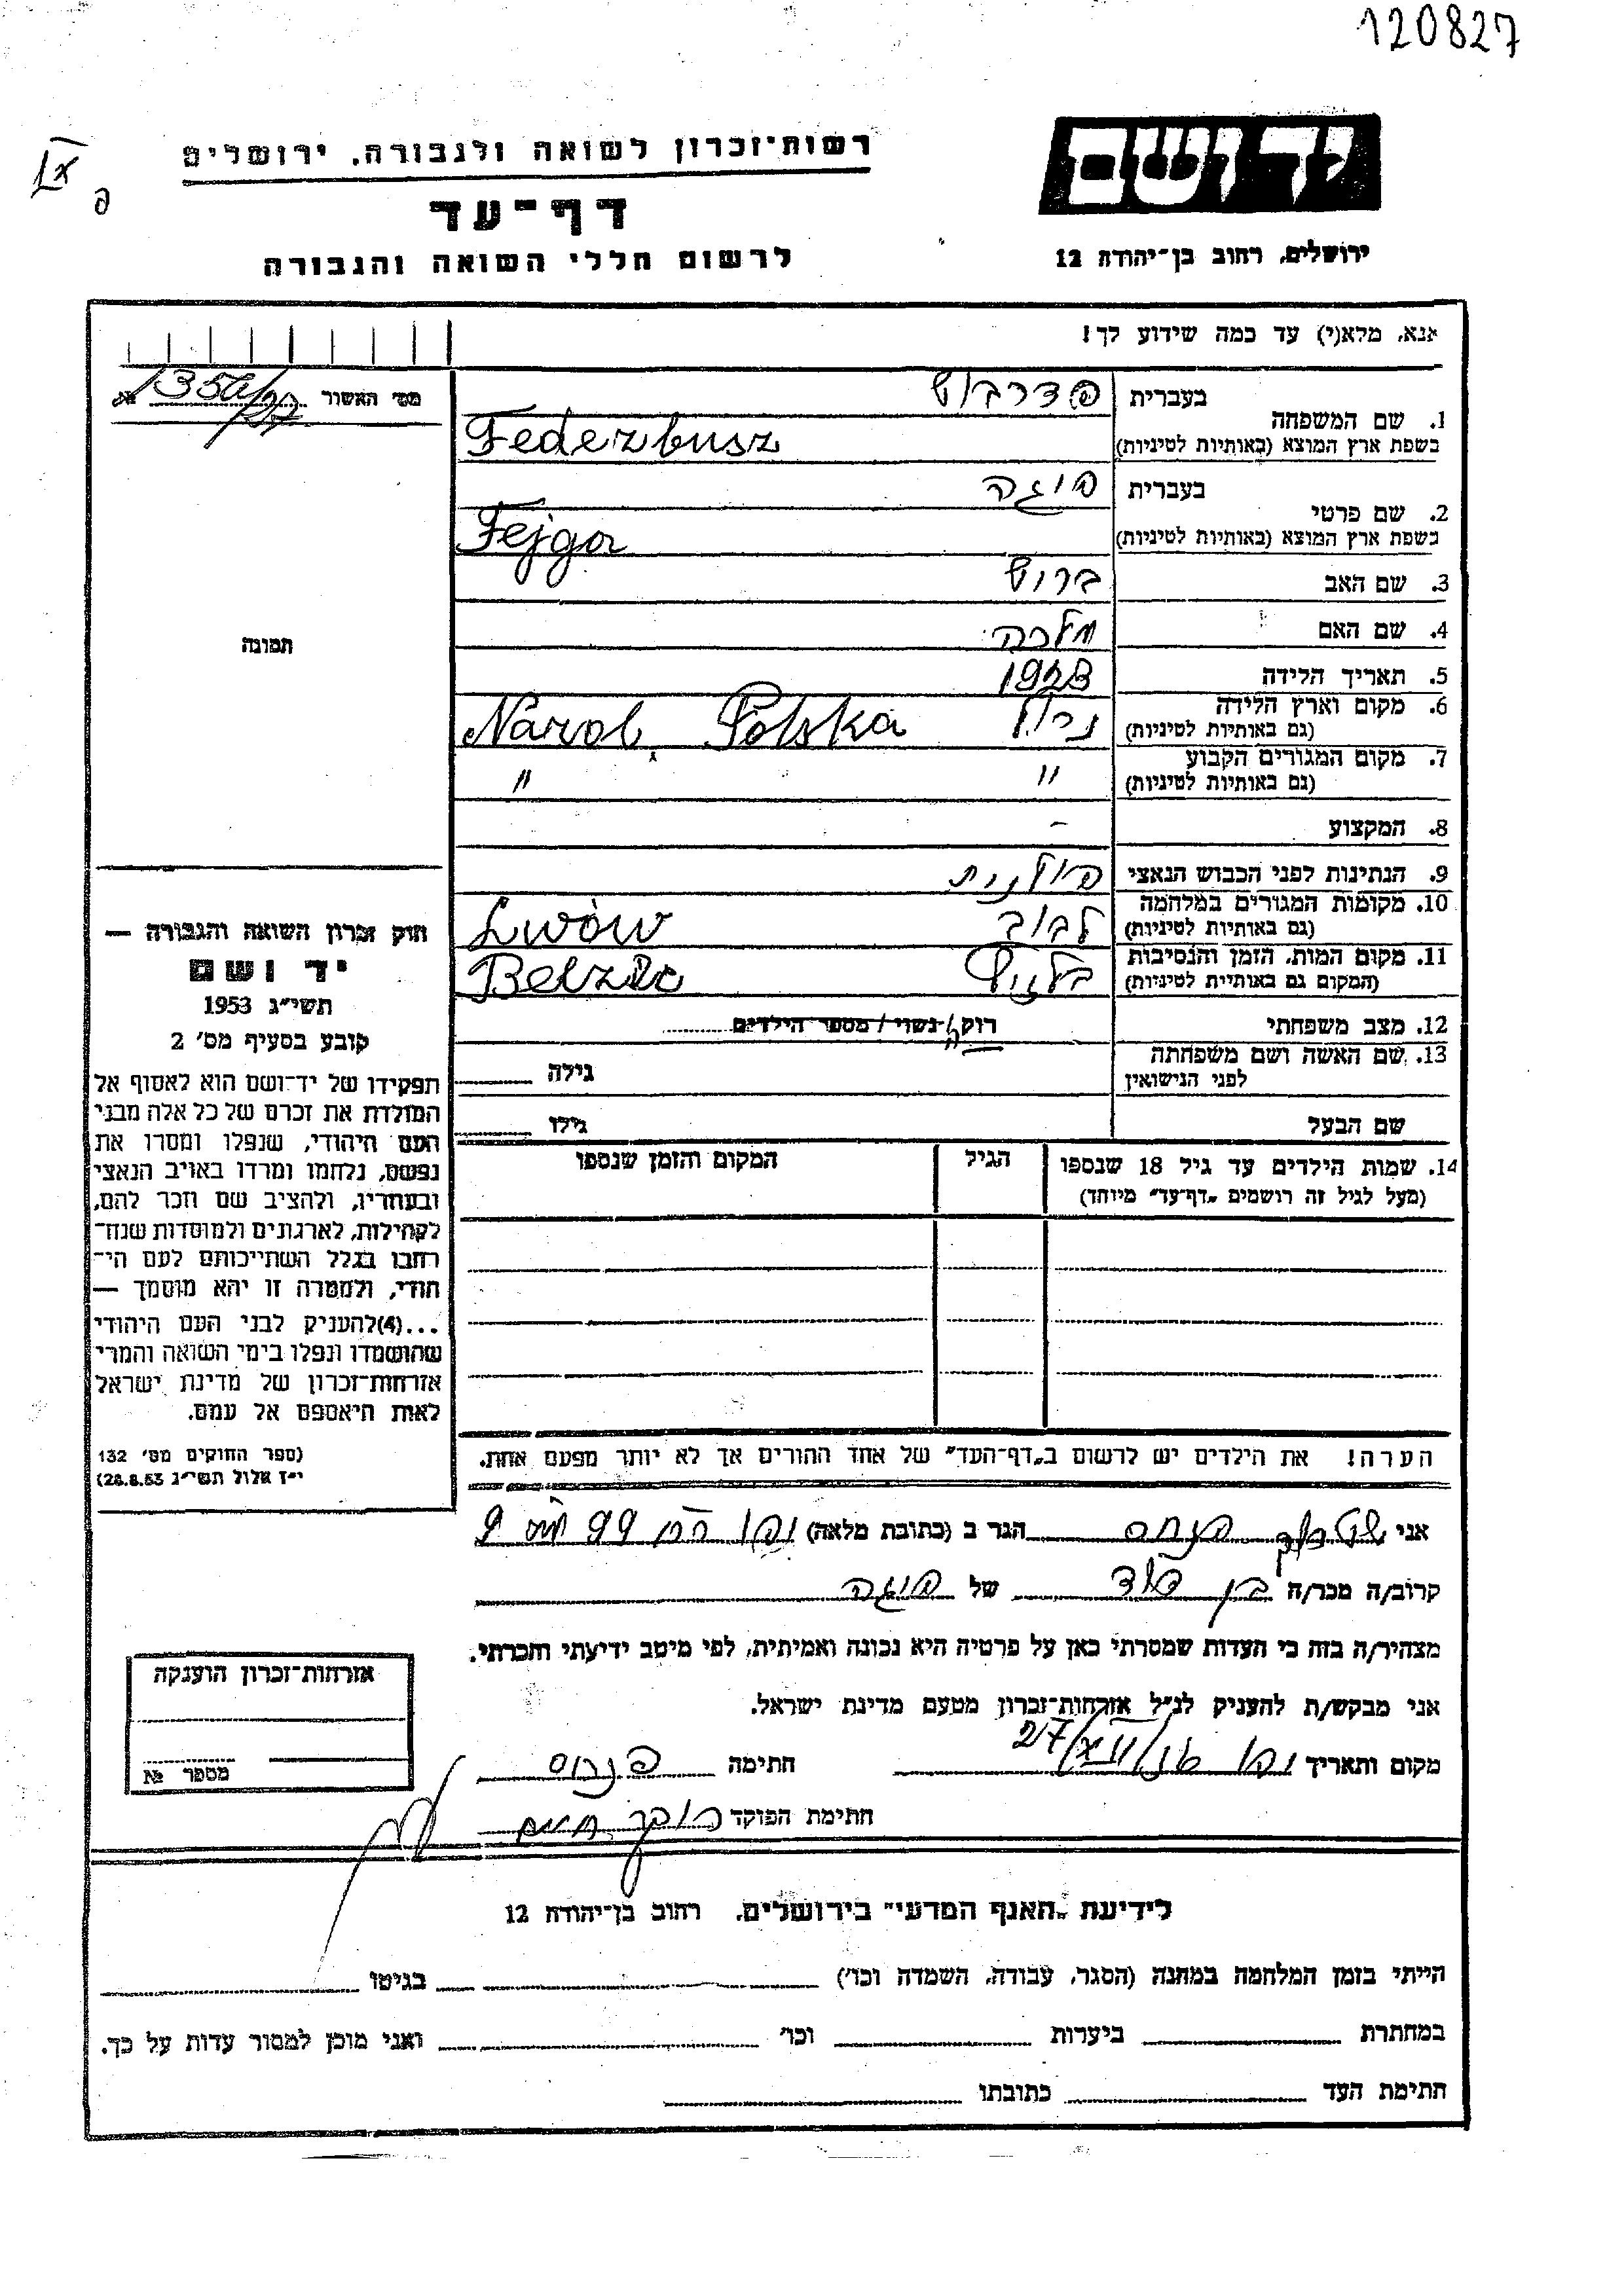 120827
IX
פ
רשות־זכרון לשואה ולגבורה, ירושלים
דף־עד
לרשום חללי השואה והגבורה
יד ושם
ירושלים, רחוב בן־יהודה 12
אנא, מלא(י) עד כמה שידוע לך!
מס׳ האשור №
1. שם המשפחה
בעברית פדרבוש
בשפת ארץ המוצא (באותיות לטיניות) Federbusz
2. שם פרטי
בעברית פיגה
בשפת ארץ המוצא (באותיות לטיניות) Fejga
3. שם האב ברוש
4. שם האם מלכה
5. תאריך הלידה 1923
6. מקום וארץ הלידה
(גם באותיות לטיניות) נרול Narol, Polska
7. מקום המגורים הקבוע
(גם באותיות לטיניות) " "
8. המקצוע –
9. הנתינות לפני הכבוש הנאצי פולנית
10. מקומות המגורים במלחמה
(גם באותיות לטיניות) לבוב Lwów
11. מקום המות, הזמן והנסיבות
(המקום גם באותיית לטיניות) Bełżec
12. מצב משפחתי רוק/ה נשוי / מספר הילדים
13. שם האשה ושם משפחתה
לפני הנישואין גילה
שם הבעל גילו
14. שמות הילדים עד גיל 18 שנספו
(מעל לגיל זה רושמים „דף־עד״ מיוחד)
הגיל
המקום והזמן שנספו
תמונה
חוק זכרון השואה והגבורה —
יד ושם
תשי״ג 1953
קובע בסעיף מס׳ 2
תפקידו של יד־ושם הוא לאסוף אל
המולדת את זכרם של כל אלה מבני
העם היהודי, שנפלו ומסרו את
נפשם, נלחמו ומרדו באויב הנאצי
ובעוזריו, ולהציב שם וזכר להם,
לקהילות, לארגונים ולמוסדות שנח־
רבו בגלל השתייכותם לעם הי־
הודי, ולמטרה זו יהא מוסמך —
...(4)להעניק לבני העם היהודי
שהושמדו ונפלו בימי השואה והמרי
אזרחות־זכרון של מדינת ישראל
לאות היאספם אל עמם.
(ספר החוקים מס׳ 132
י״ז אלול תשי״ג 28.8.53)
הערה! את הילדים יש לרשום ב„דף־העד״ של אחד ההורים אך לא יותר מפעם אחת.
אני פנחס הגר ב (כתובת מלאה)
קרוב/ה מכר/ה בן דוד של פיגה
מצהיר/ה בזה כי העדות שמסרתי כאן על פרטיה היא נכונה ואמיתית, לפי מיטב ידיעתי והכרתי.
אני מבקש/ת להעניק לנ״ל אזרחות־זכרון מטעם מדינת ישראל.
מקום ותאריך 27/XII חתימה פנחס
חתימת הפוקד חיים
אזרחות־זכרון הוענקה
מספר №
לידיעת „האנף המדעי״ בירושלים, רחוב בן־יהודה 12
הייתי בזמן המלחמה במחנה (הסגר, עבודה, השמדה וכו׳) בגיטו
במחתרת ביערות וכו׳ ואני מוכן למסור עדות על כך.
חתימת העד כתובתו